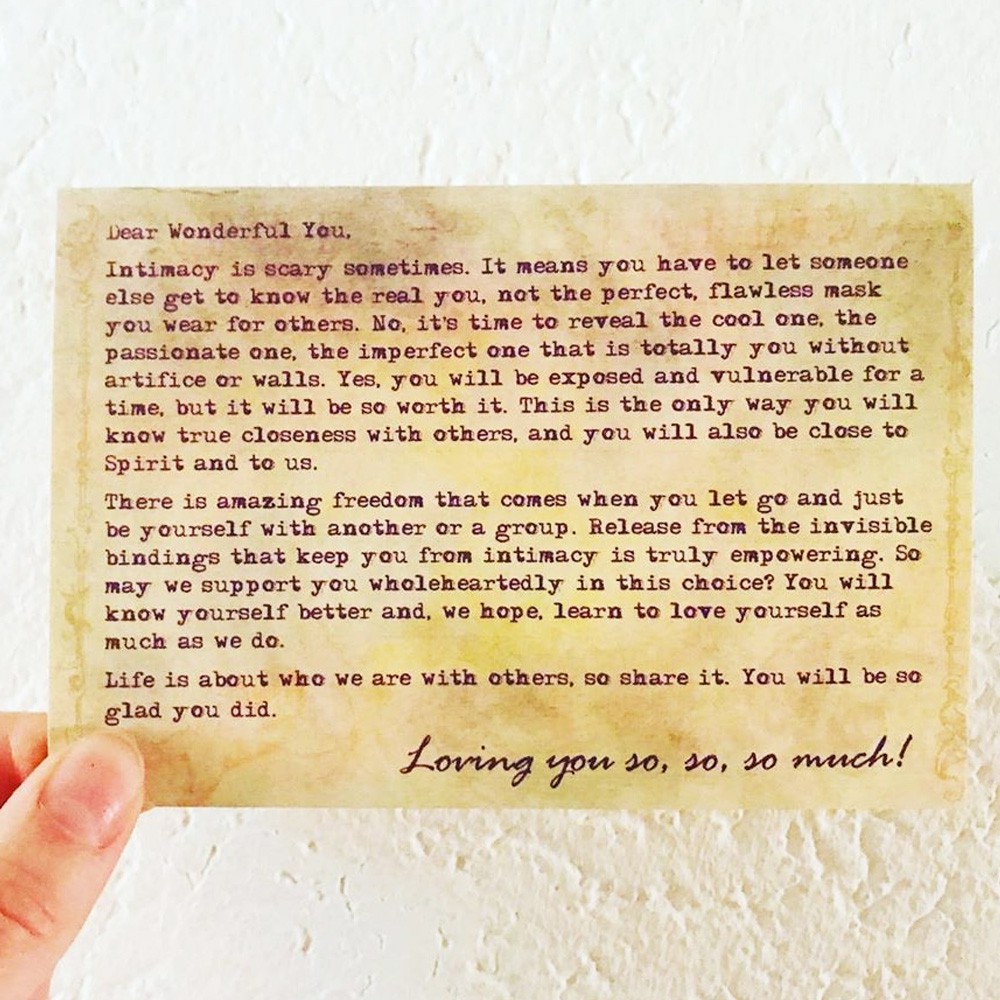 Dear Wonderful You,
Intimacy is scary sometimes. It means you have to let someone
else get to know the real you, not the perfect, flawless mask
you wear for others. No, it's time to reveal the cool one, the
passionate one, the imperfect one that is totally you without
artifice or walls. Yes, you will be exposed and vulnerable for a
time, but it will be so worth it. This is the only way you will
know true closeness with others, and you will also be close to
Spirit and to us.
There is amazing freedom that comes when you let go and just
be yourself with another or a group. Release from the invisible
bindings that keep you from intimacy is truly empowering. So
may we support you wholeheartedly in this choice? You will
know yourself better and, we hope, learn to love yourself as
much as we do.
Life is about who we are with others, so share it. You will be so
glad you did.
Loving you so, so, so much!